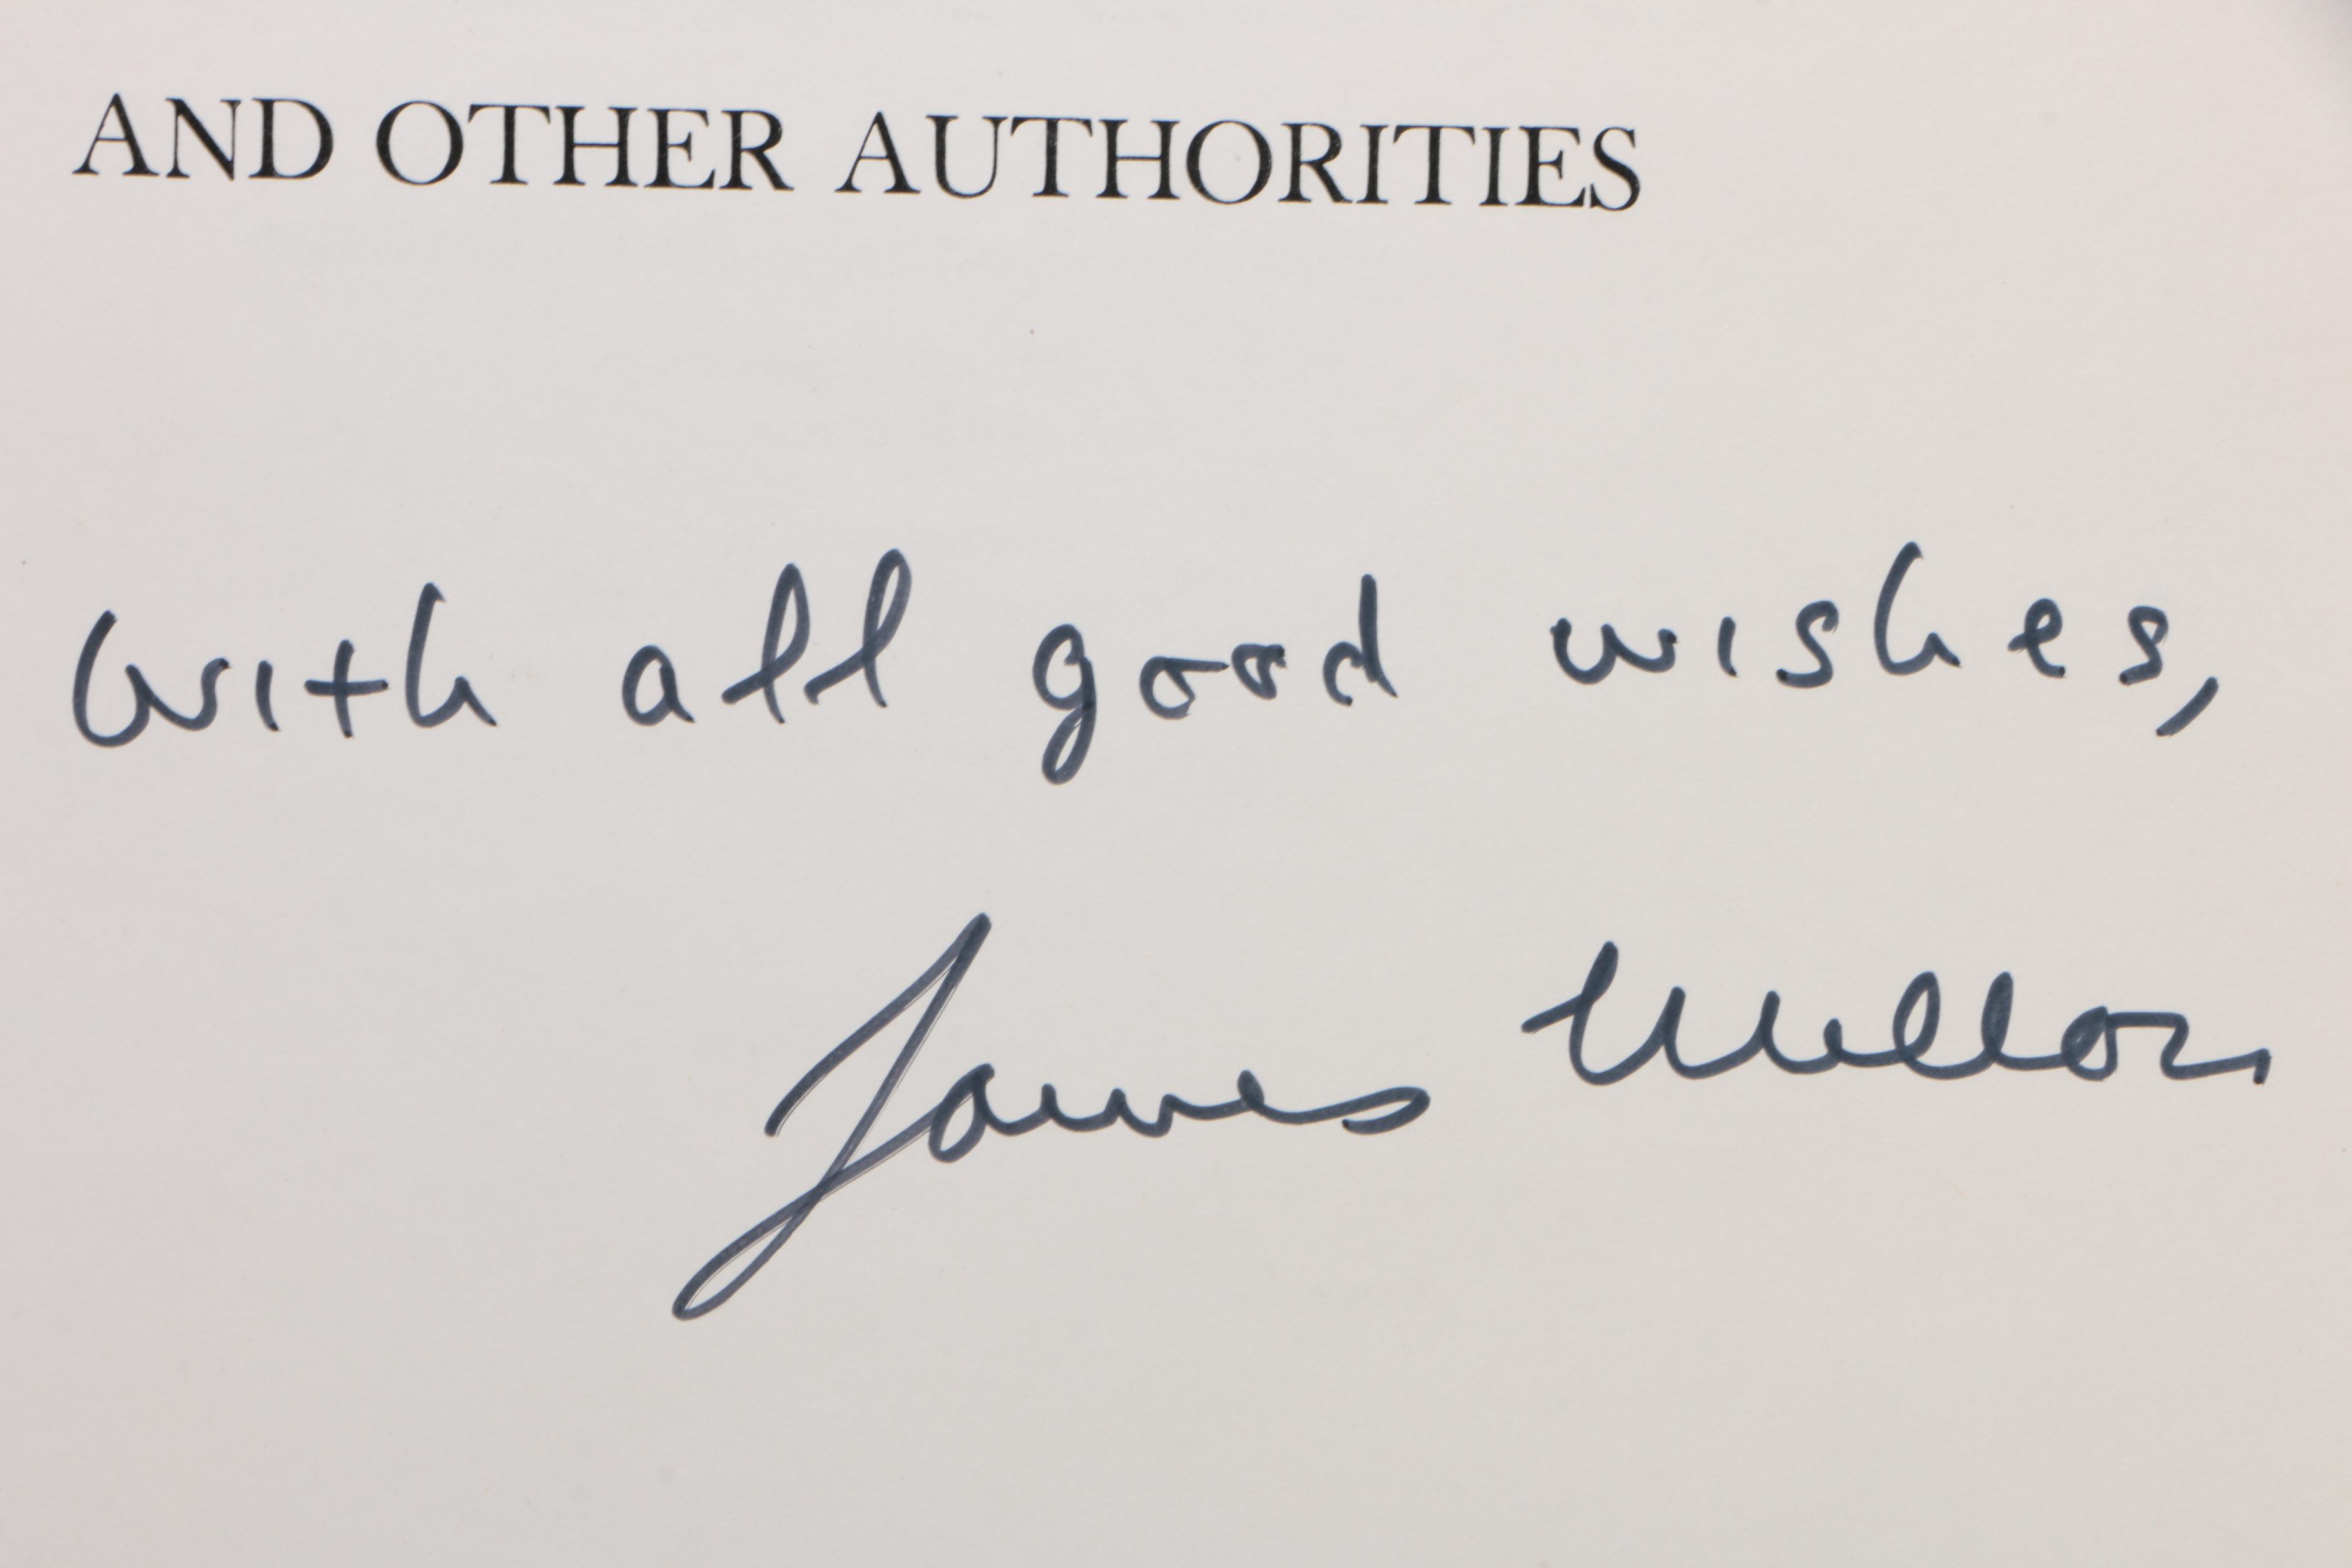 AND OTHER AUTHORITIES
With all good wishes,
James Mellon